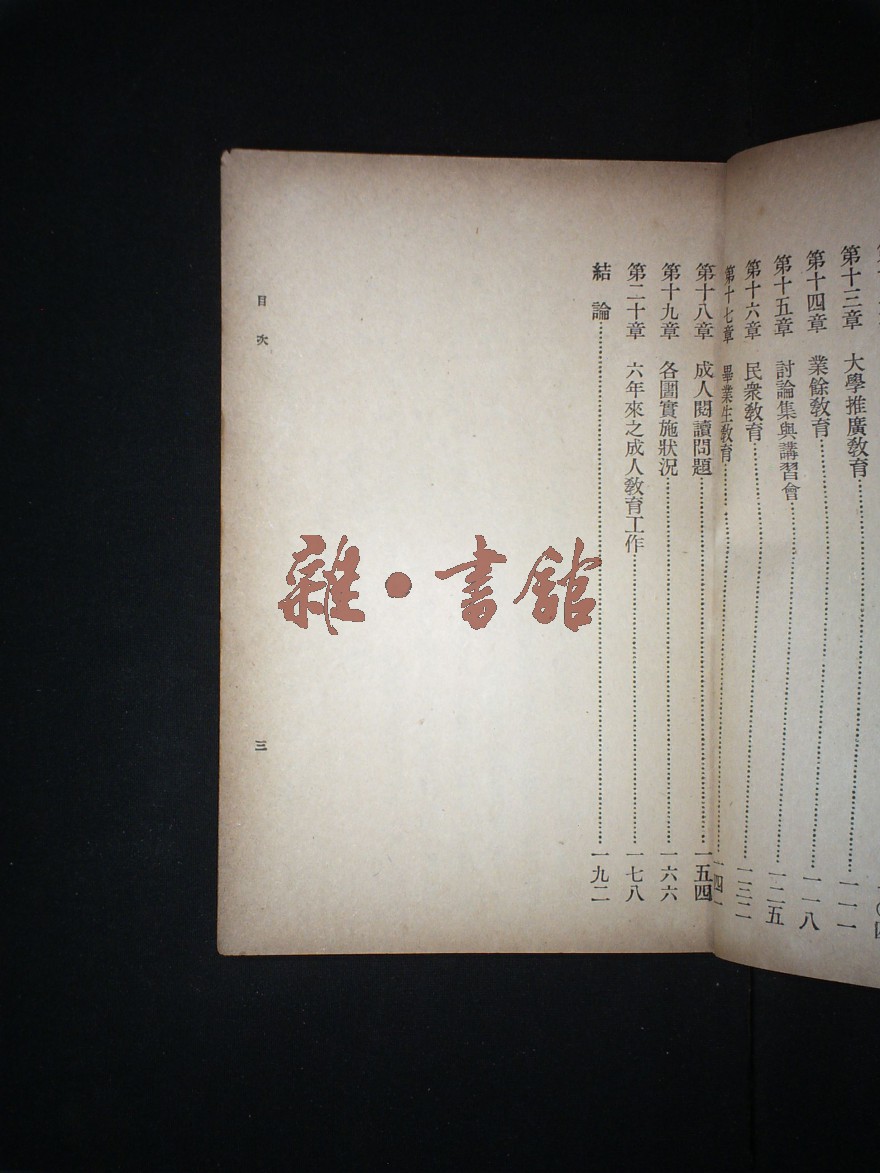 第十三章 大學推廣教育……一一一
第十四章 業餘教育……一一八
第十五章 討論集與講習會……一二五
第十六章 民衆教育……一三二
第十七章 畢業生教育……一四一
第十八章 成人閱讀問題……一五四
第十九章 各國實施狀况……一六六
第二十章 六年來之成人教育工作……一七八
結論……一九二
目次
三
雜·書館